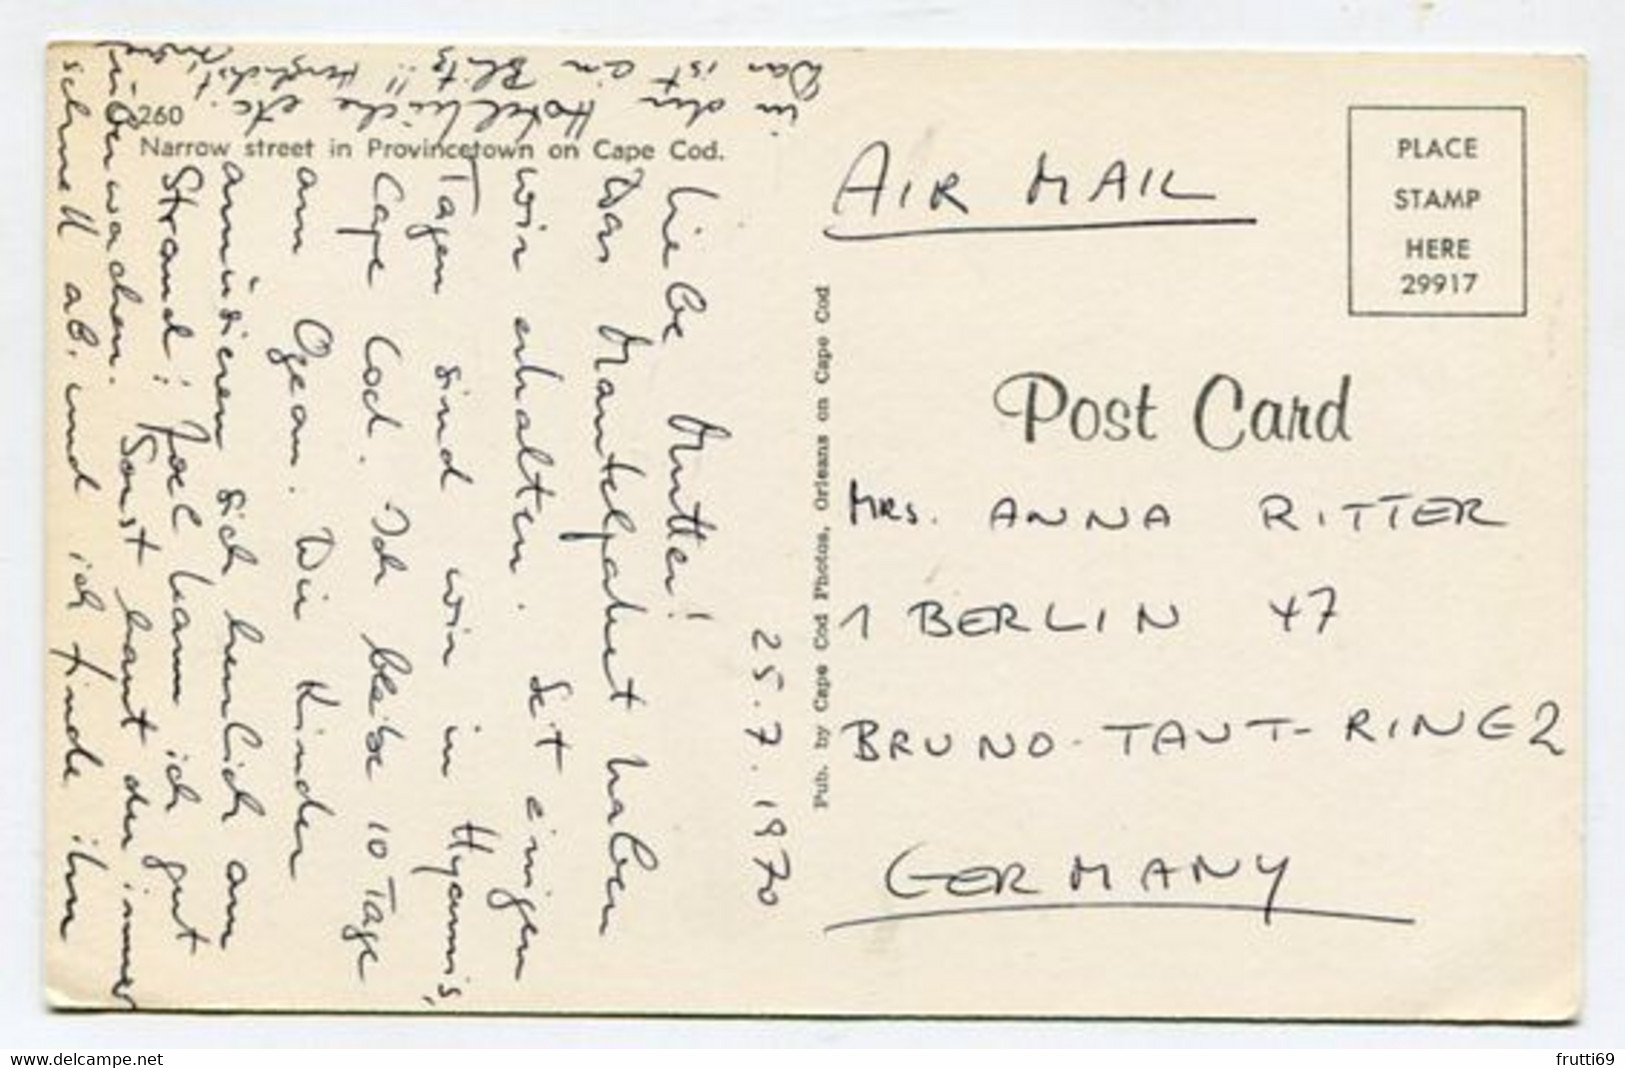 260
Narrow street in Provincetown on Cape Cod.
25.7.1970
Liebe Mutter!
Das Mantelpaket haben
wir erhalten. Seit einigen
Tagen sind wir in Hyannis,
Cape Cod. Ich bleibe 10 Tage
am Ozean. Die Kinder
amüsieren sich herrlich am
Strand; Joel kann ich gut
überwachen. Sonst haut der immer
schnell ab, und ich finde ihn
in der Hotelküche etc.
Das ist ein Blitz!! Herzlichst,
Pub. by Cape Cod Photos, Orleans on Cape Cod
AIR MAIL
PLACE
STAMP
HERE
29917
Post Card
MRS. ANNA RITTER
1 BERLIN 47
BRUNO-TAUT-RING 2
GERMANY
www.delcampe.net
frutti69